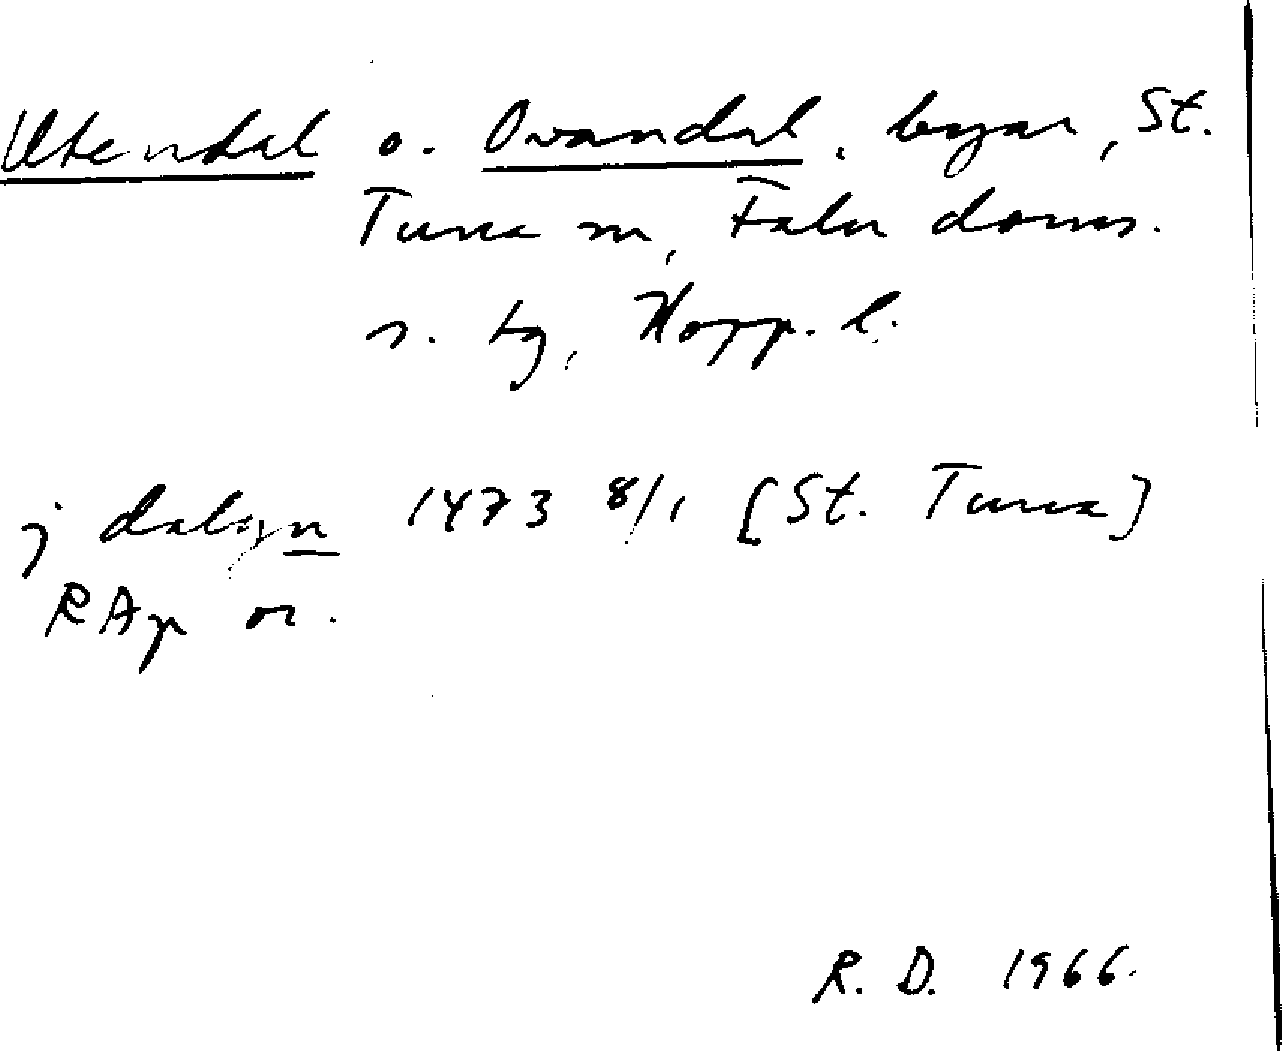 Utendal o. Ovandal, byar, St.
Tuna sn, Falu doms.
s. tg, Kopp. l.
j dalyn 1473 8/1 [St. Tuna]
RAp or.
R. D. 1966.